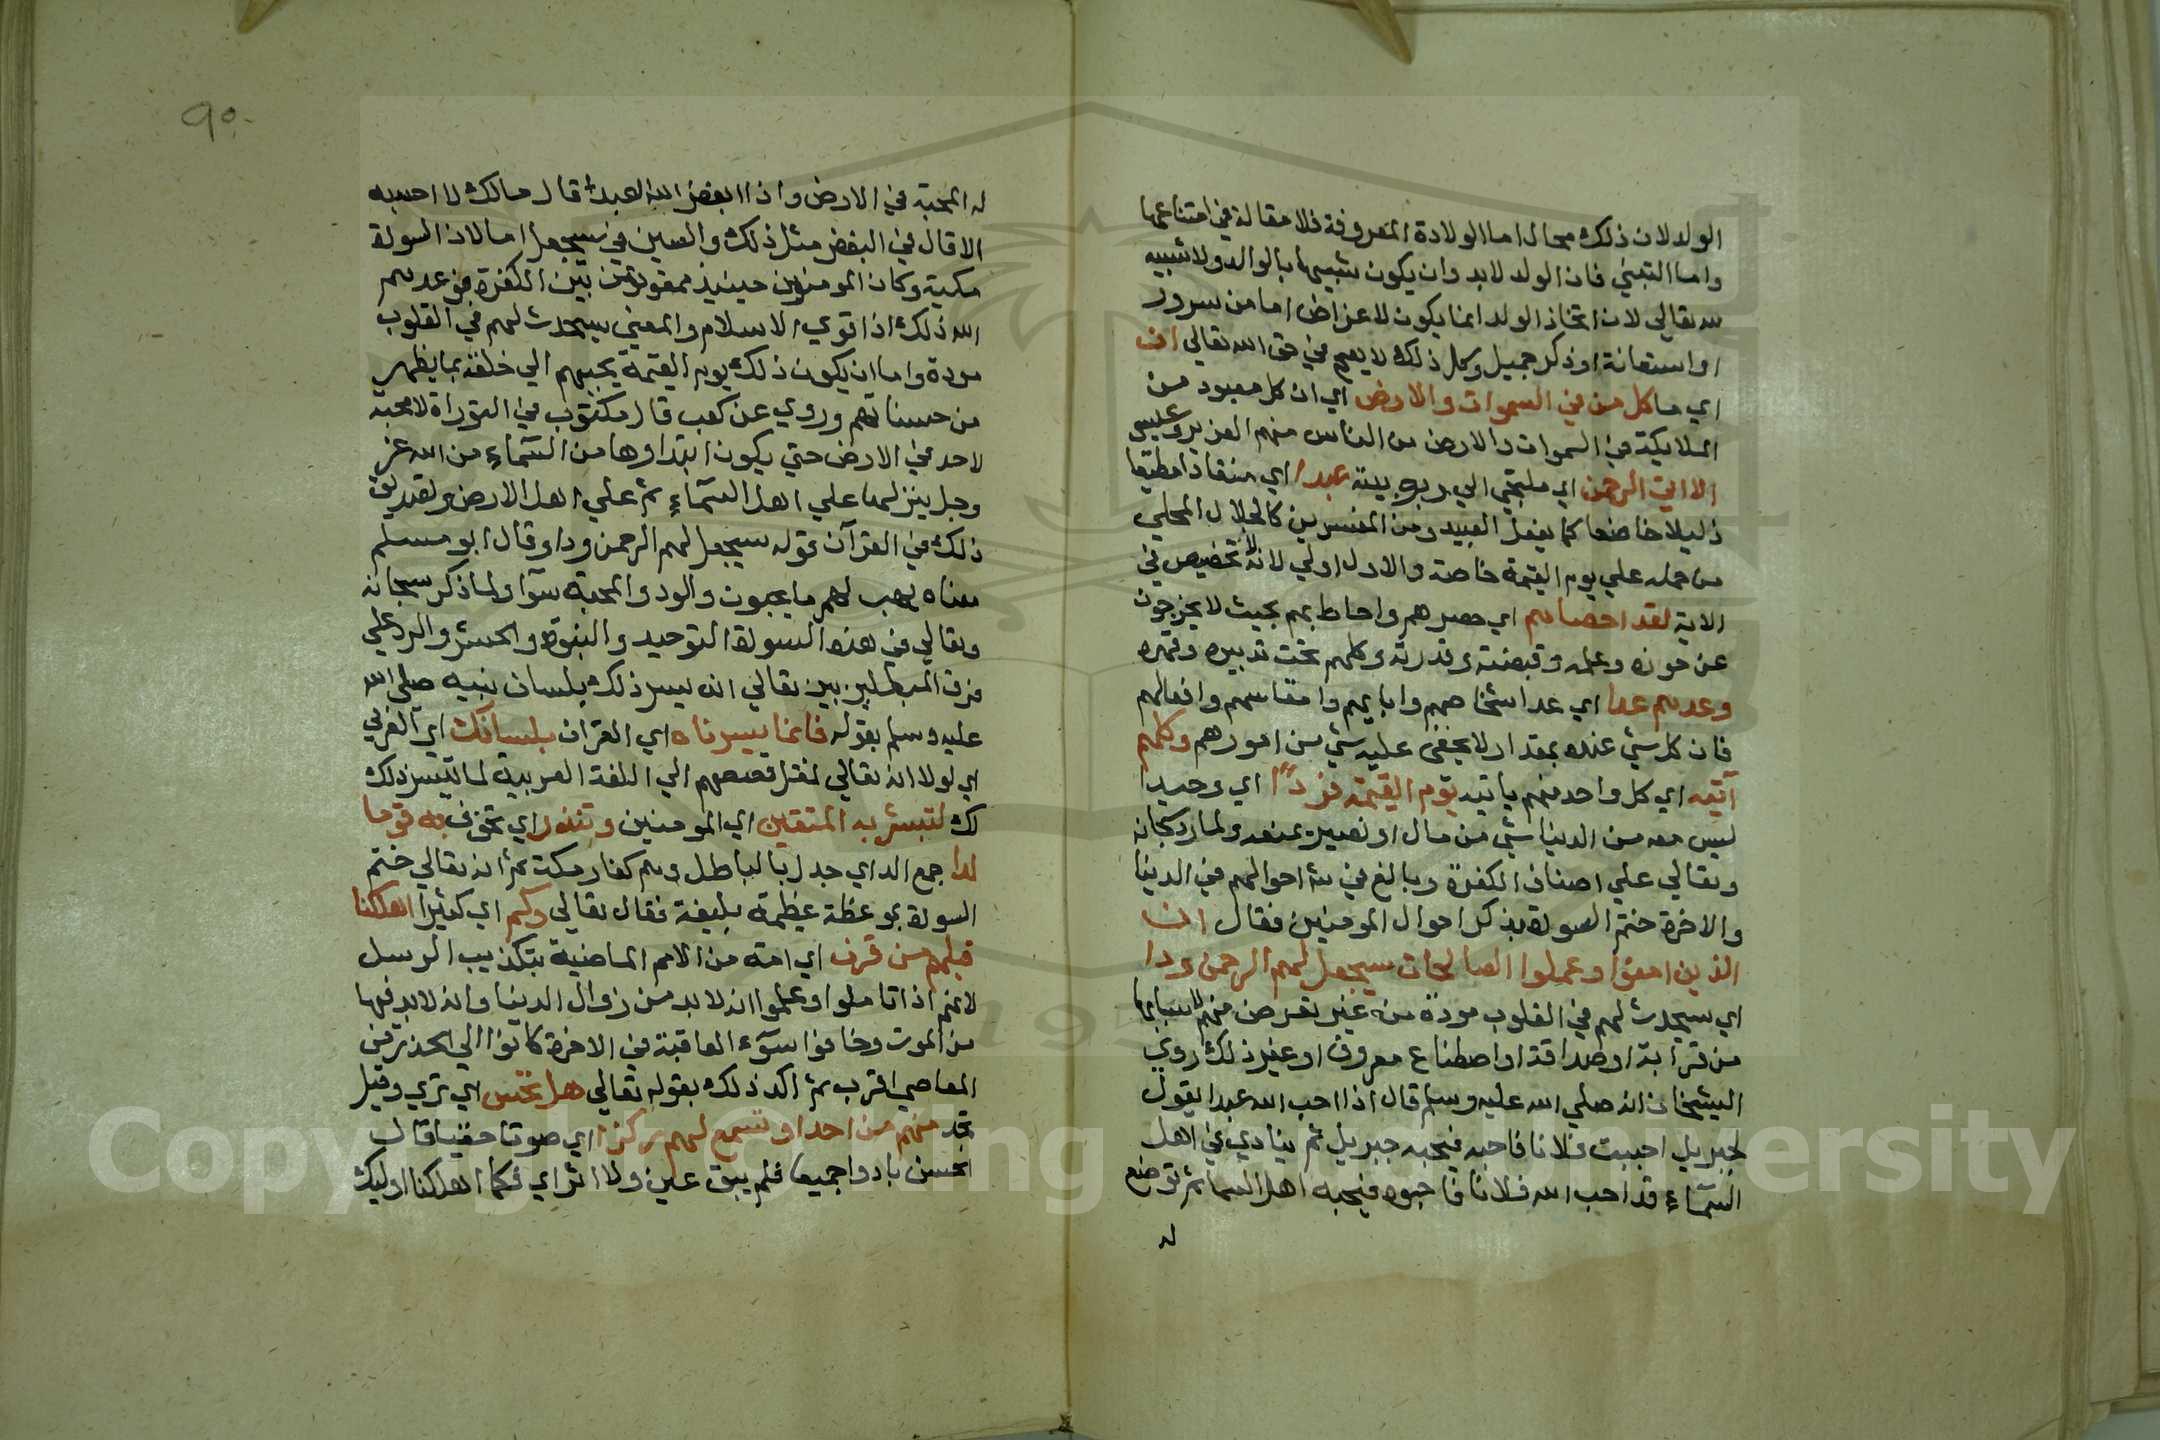 الولد لان ذلك محال اما الولادة المعروفة فلا مقالة في امتناعها
واما التبني فان الولد لابد وان يكون شبيها بالوالد ولا شبيه
لله تعالى لان اتخاذ الولد انما يكون لاغراض اما من سرور
او استعانة او ذكر جميل وكل ذلك لا يصح في حق الله تعالى ان
اي ما كل من في السموات والارض اي ان كل معبود من
الملايكة في السموات والارض من الناس منهم العزير وعيسى
الا اتي الرحمن اي ملتجي الي ربوبيته عبدا اي منقادا مطيعا
ذليلا خاضعا كما يفعل العبيد ومن المفسرين كالجلال المحلي
من حمله علي يوم القيمة خاصة والاول اولي لانه لا تخصيص في
الاية لقد احصاهم اي حصرهم واحاط بهم بحيث لا يخرجون
عن حوزه وعلمه وقبضته وقدرته وكلهم تحت تدبيره وقهره
وعدهم عدا اي عد اشخاصهم وايامهم وانفاسهم وافعالهم
فان كل شي عنده بمقدار لا يخفى عليه شي من امورهم وكلهم
آتيه اي كل واحد منهم ياتيه يوم القيمة فردًا اي وحيدا
ليس معه من الدنيا شي من مال او نصير يمنعه ولما رد سبحانه
وتعالي علي اصناف الكفرة وبالغ في شرح احوالهم في الدنيا
والاخرة ختم السورة بذكر احوال المومنين فقال ان
الذين امنوا وعملوا الصالحات سيجعل لهم الرحمن ودا
اي سيحدث لهم في القلوب مودة من غير تعرض منهم لاسبابها
من قرابة او صداقة او اصطناع معروف او غير ذلك روي
الشيخان انه صلي الله عليه وسلم قال اذا احب الله عبدا يقول
لجبريل احببت فلانا فاحبه فيحبه جبريل ثم ينادي في اهل
السماء قد احب الله فلانا فاحبوه فيحبه اهل السما ثم توضع
له
٩٠
له المحبة في الارض واذا ابغض الله العبد قال مالك لا احسبه
الا قال في البغض مثل ذلك والسين في سيجعل اما لان السورة
مكية وكان المومنون حينيذ ممقوتين بين الكفرة فوعدهم
الله ذلك اذا قوي الاسلام والمعني سيحدث لهم في القلوب
مودة واما ان يكون ذلك يوم القيمة يحببهم الي خلقه بما يظهر
من حسناتهم وروي عن كعب قال مكتوب في التوراة لا محبة
لاحد في الارض حتي يكون ابتداوها من السماء من الله عز
وجل ينزلها علي اهل السماء ثم علي اهل الارض وتصديق
ذلك في القرآن قوله سيجعل لهم الرحمن ودا وقال ابو مسلم
معناه يهب لهم ما يحبون والود والمحبة سوا ولما ذكر سبحانه
وتعالي في هذه السورة التوحيد والنبوة والحشر والرد علي
فرق المبطلين بين تعالي انه يسر ذلك بلسان نبيه صلى الله
عليه وسلم بقوله فانما يسرناه اي القران بلسانك اي العربي
اي لولا انه تعالي نقل قصصهم الي اللغة العربية لما تيسر ذلك
لك لتبشر به المتقين اي المومنين وتنذر اي تخوف به قوما
لدا جمع الد اي جدل بالباطل وهم كفار مكة ثم انه تعالي ختم
السورة بموعظة عظيمة بليغة فقال تعالي وكم اي كثيرا اهلكنا
قبلهم من قرن اي امة من الامم الماضية بتكذيب الرسل
لانهم اذا تاملوا وعلموا انه لا بد من زوال الدنيا وانه لابد فيها
من الموت وخافوا سوء العاقبة في الاخرة كانوا الي الحذر من
المعاصي اقرب ثم اكد ذلك بقوله تعالي هل تحس اي تري وقيل
تجد منهم من احد او تسمع لهم ركزا اي صوتا خفيا قال
الحسن بادوا جميعا فلم يبق عين ولا اثر اي فكما اهلكنا اوليك
Copyright © King Saud University